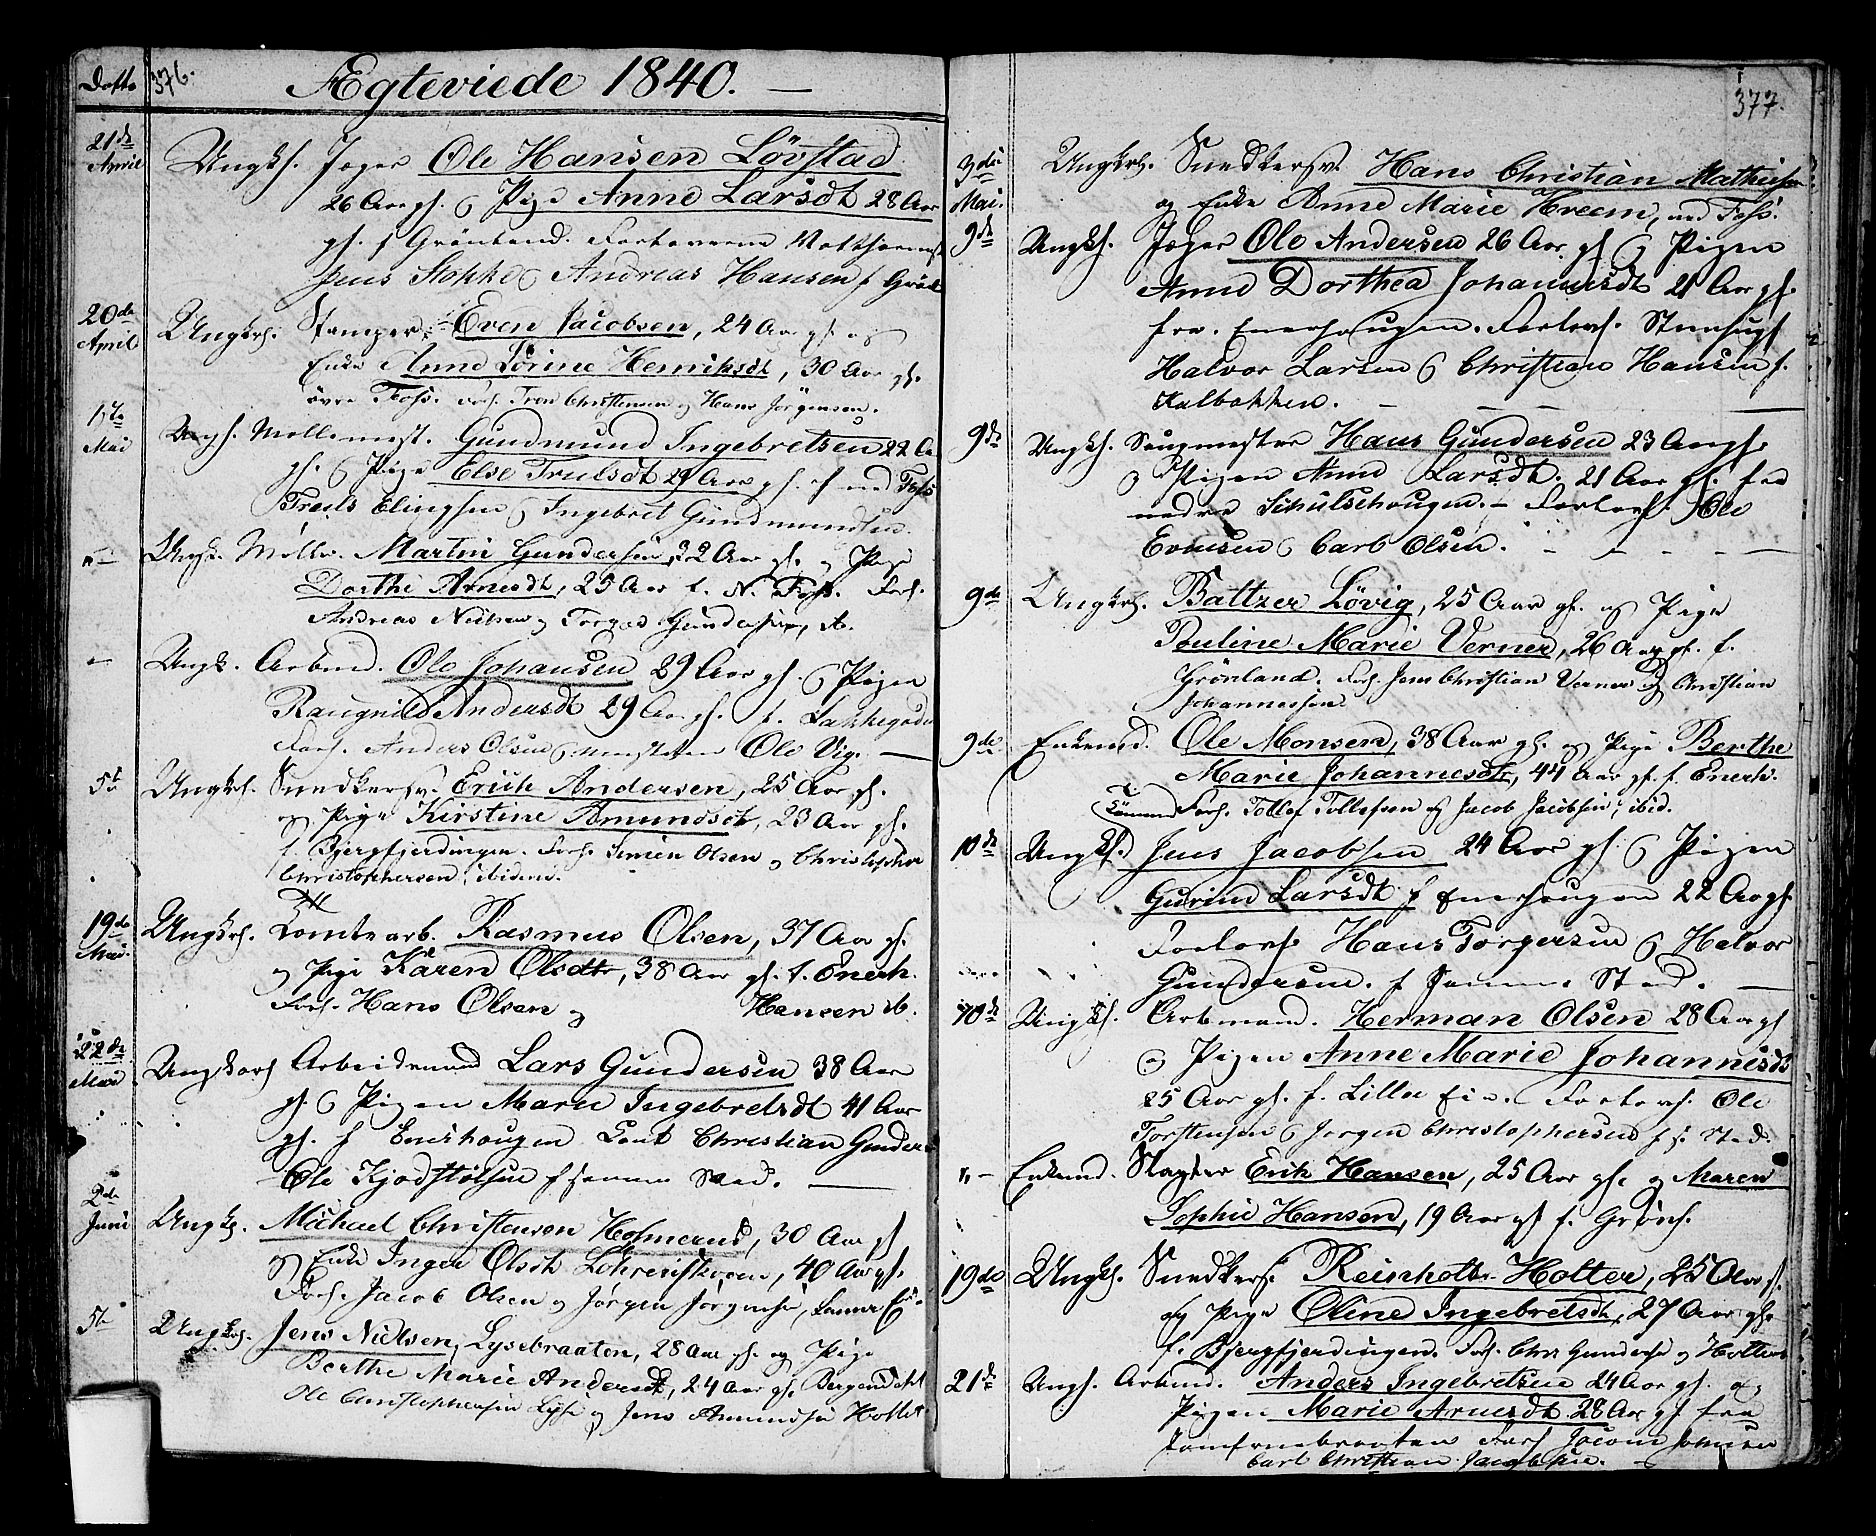 Dato 376. Ægteviede 1840. —
21de April Ungk. Jæger Ole Hansen Lövstad
26 Aar gl. & Pige Anne Larsdt 28 Aar
gl. f Grönland. Forloverne
Jens Stokke & Andreas Hansen f Grönl
20de April Ungkrl. Stamper Even Jacobsen, 24 Aar gl. og
Enke Anne Lorine Henriksdt, 30 Aar gl.
övre Foss. Forl. Tron Christensen og Hans Jörgensen.
1ste Mai Ungk. Möllemest. Gundmund Ingebretsen 22 Aa
gl. & Pige Else Trulsdt 29 Aar gl. f ned Foss
Truls Elingsen & Ingebret Gundmundsen
" — Ungk. Möller. Martin Gundersen, 22 Aar gl. og Pige
Dorthe Arnesdt, 25 Aar f. N. Foss. Forl.
Andreas Nielsen og Torger Gundersen, ib.
" Ungk. Arbmd. Ole Johansen 29 Aar gl. & Pigen
Raugnild Andersdt 29 Aar gl. f. Lakkegaden
Forl. Anders Olsen & Ole Vig. —
5te Ungkrl. Snedkersv. Erich Andersen, 25 Aar gl.
og Pige Kirstine Amundsdt, 23 Aar gl.
f Bjergfjerdingen. Forl. Simen Olsen og Christopher
Christophersen, ibidem.
19de Mai. Ungkrl. Tomtearb. Rasmus Olsen, 37 Aar gl.
og Pige Karen Olsdtr, 38 Aar gl. f. Enerh.
Forl. Hans Olsen og Hansen ib.
22de Mai Ungkarl Arbeidsmand Lars Gundersen 38 Aar
gl. & Pigen Maren Ingebretsdt 41 Aar
gl. f Enerhougen Christian Gunders
Ole Kjodstolsen f samme Sted. —
2de Juni Ungk. Michael Christensen Hofmerud, 30 Aar gl
og Enke Inger Olsdt, 40 Aar gl.
Forl. Jacob Olsen og Jörgen Jörgensen,
5te Ungkrl. Jens Nielsen, Lysebraaten, 28 Aar gl. og Pige
Berthe Marie Andersdt, 24 Aar gl.
Ole Christophersen Lyse og Jens Amundsen
377.
3die Mai. Ungkrl. Snedkersv. Hans Christian Mathiesen
og Enke Anne Marie, ned Foss.
9de Ungk. Jæger Ole Andersen 26 Aar gl & Pigen
Anne Dorthea Johannesdt 21 Aar gl.
fra Enerhougen. Forlov. Stenhug
Halvor Larsen & Christian Hansen f.
Kalbakken. — — —
9de Ungk. Saugmester Hans Gundersen 23 Aar gl
& Pigen Anne Larsdt. 21 Aar gl. fra
nedre Schulschougen. — Forlov. Ole
Evensen & Carl Olsen. — — — —
9de Ungkrl. Baltzer Lövig, 25 Aar gl. og Pige
Pauline Marie Verner, 26 Aar gl. f.
Grönland. Forl. Jens Christian Verner og Christian
Johannessen
9de Enkemd. Ole Monsen, 38 Aar gl. og Pige Berthe
Marie Johannesdtr, 44 Aar gl. f. Enerh.
Forl. Tollef Tollefsen og Jacob Jacobsen, ibid.
10de Ungk. Jens Jacobsen 24 Aar gl. & Pigen
Gurine Larsdt f Enerhougen 22 Aar gl.
Forlov. Hans Torgersen & Halvor
Gundersen. f Samme Sted. —
10de Ungk. Arbmand. Herman Olsen 28 Aar gl
& Pigen Anne Marie Johannesdt
25 Aar gl. f. Lille Forlov. Ole
Torstensen & Jorgen Christophersen f s. Sted.
" — Enkemd. Slagter Erik Hansen, 25 Aar gl. og Maren
Sophie Hansen, 19 Aar gl f. Grönl.
19de Ungk. Snedkers. Reinholt Holter, 25 Aar gl.
og Pige Oline Ingebretsdt, 27 Aar gl.
f. Bjergfjerdingen. Forl. Chr Gundersen og Holter
21de Ungk. Arbmd. Anders Ingebretsen 24 Aar gl. og
Pigen Marie Arnesdt 28 Aar gl fra
Jomfruebraaten Forl Johnsen
Carl Christian Jacobsen. —